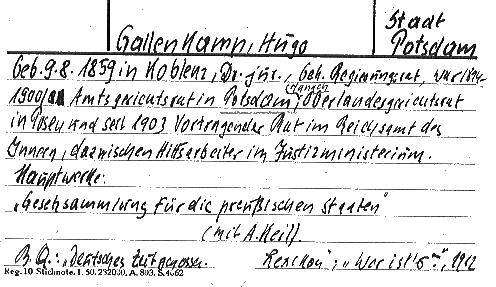 Stadt
Gallenkamp, Hugo Potsdam
Geb. 9. 8. 1859 in Koblenz, Dr. jur., Geh. Regierungsrat, war 1894-
1900 Amtsgerichtsrat in Potsdam, danach Oberlandesgerichtsrat
in Posen und seit 1903 Vortragender Rat im Reichsamt des
Innern, dazwischen Hilfsarbeiter im Justizministerium.
Hauptwerke:
„Gesetzsammlung für die preußischen Staaten"
(mit A. Keil).
B. Qu.: „Deutsches Zeitgenossen- Lexikon"; „Wer ist's", 1912
Reg. 10 Stichnote. I. 50. 232000, A. 803. S. 4062